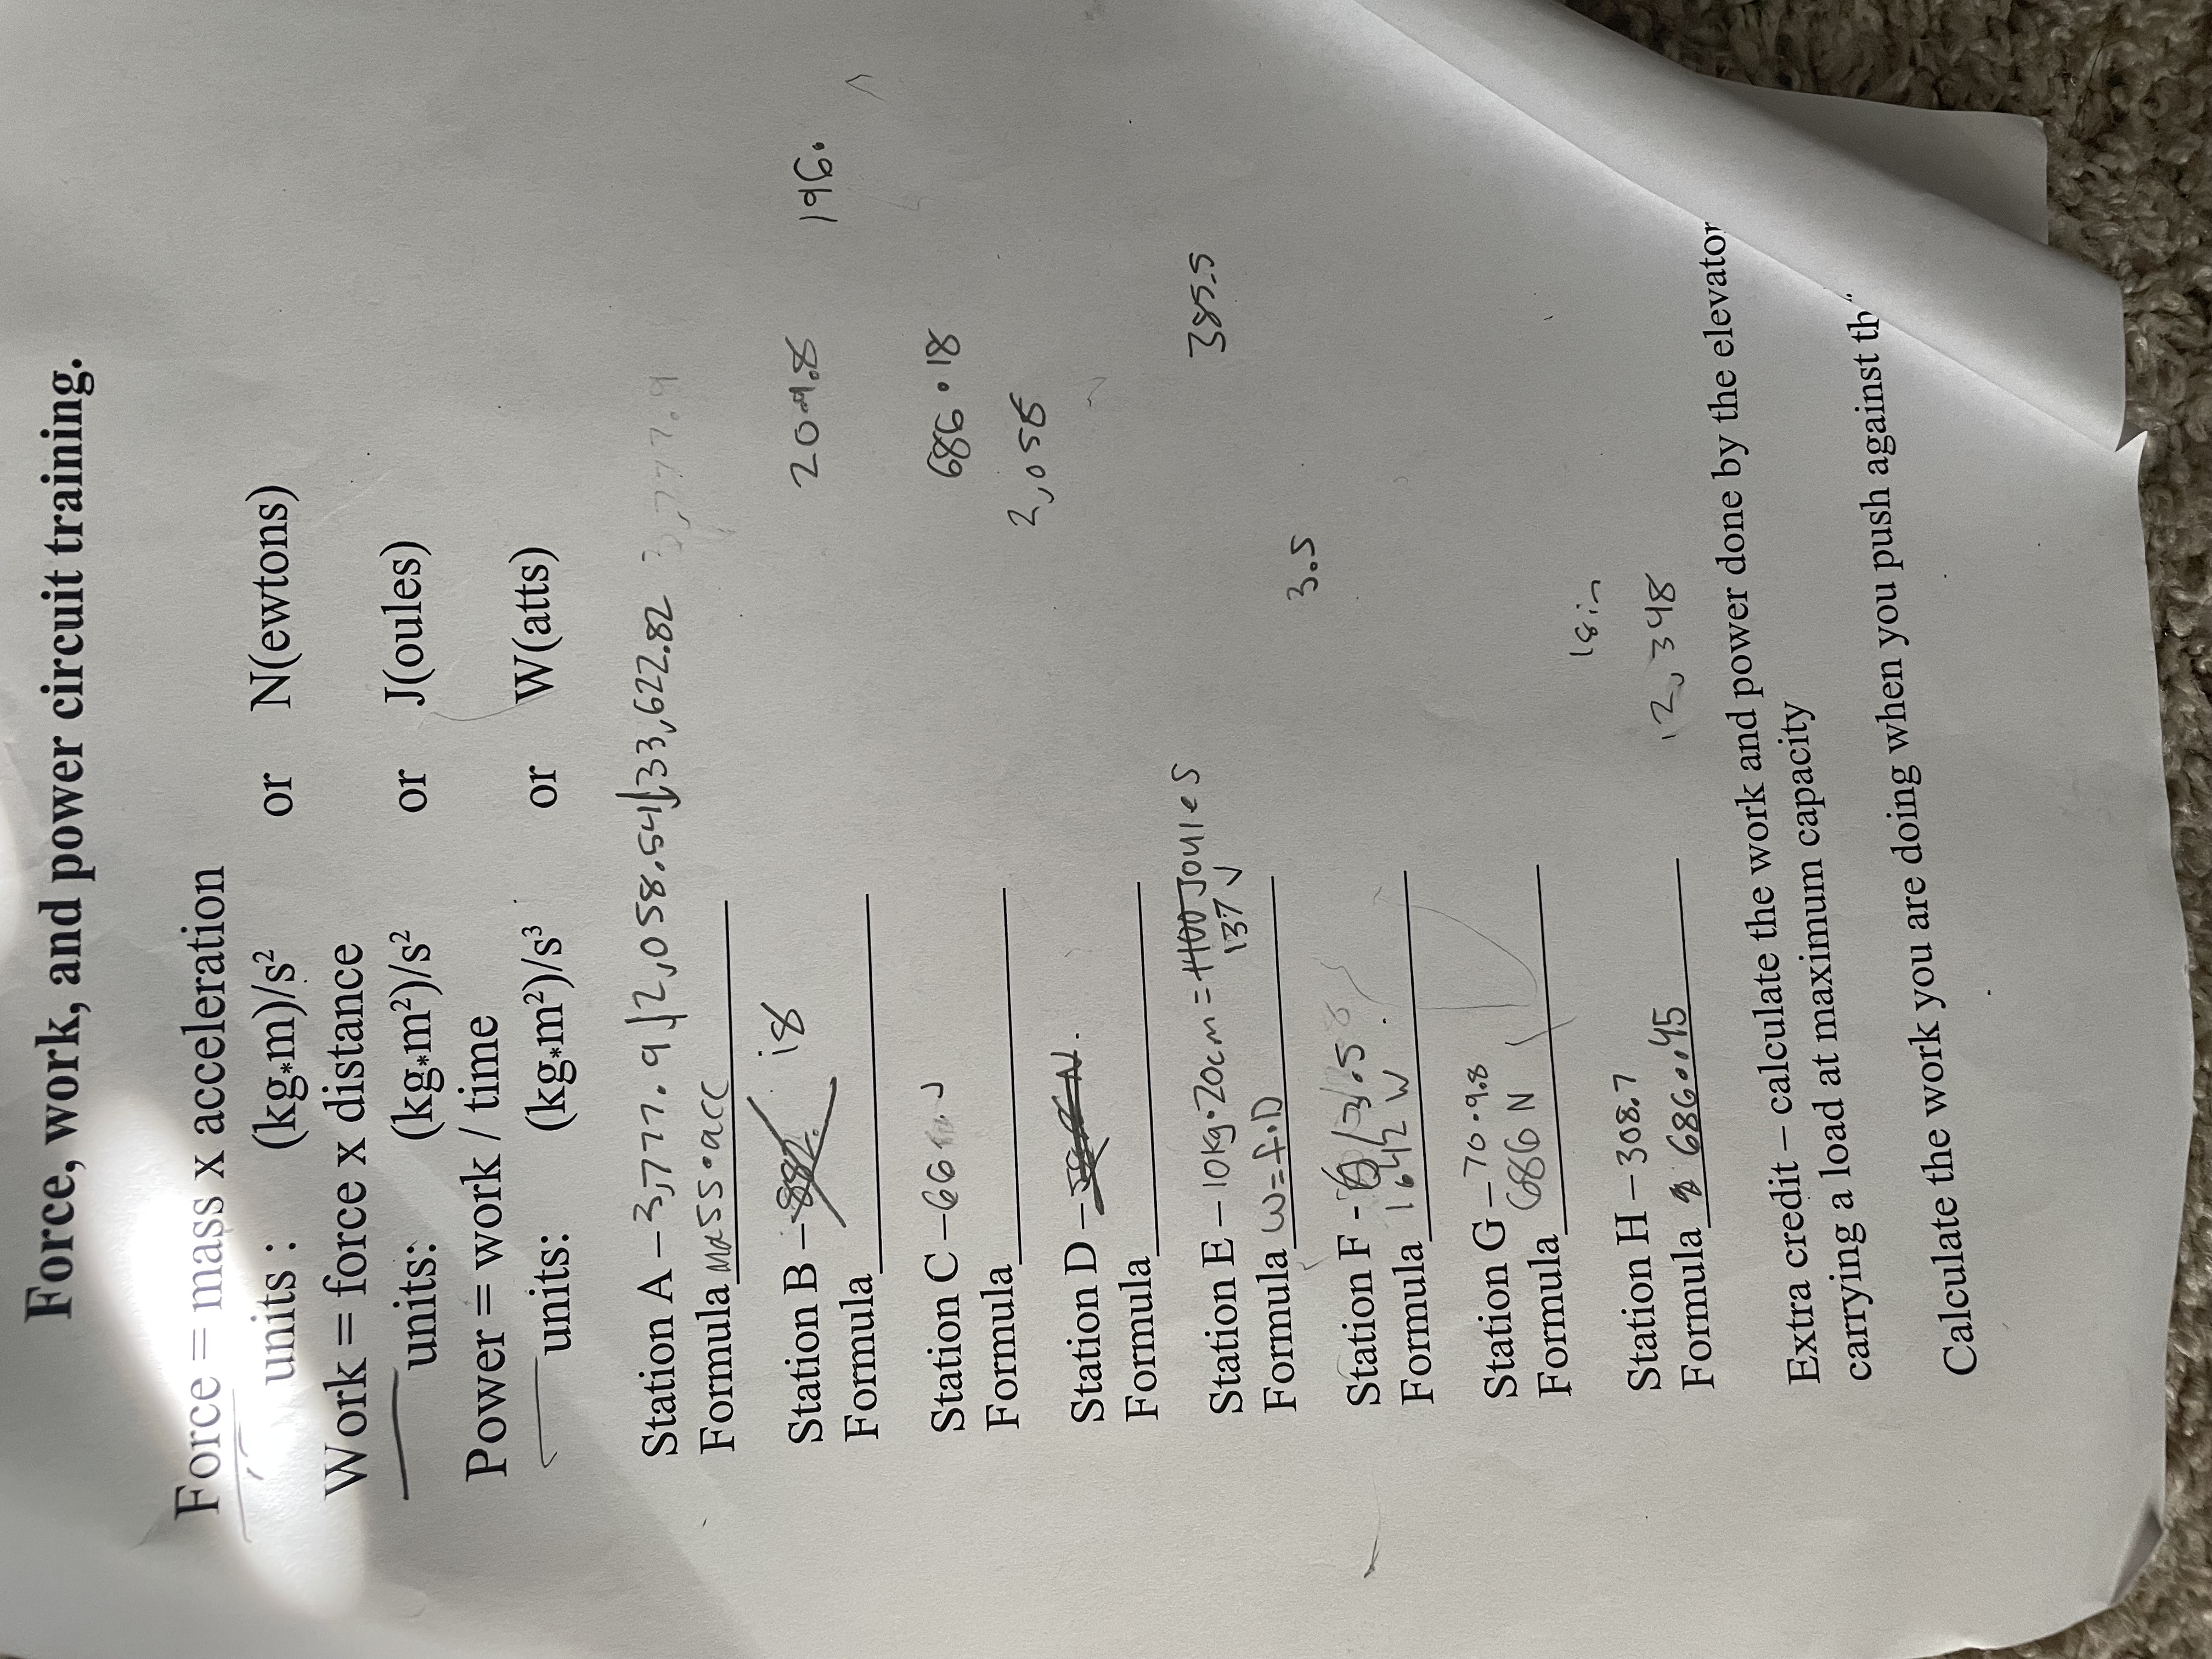 Force, work, and power circuit training.
Force = mass x acceleration
units : (kg*m)/s² or N(ewtons)
Work = force x distance
units: (kg*m²)/s² or J(oules)
Power = work / time
units: (kg*m²)/s³ or W(atts)
Station A – 3,777.9 | 2,058.54 | 33,622.82 3,777.9
Formula mass•acc
Station B – 882. 18
20•9.8 196.
Formula
Station C – 66 J
686 • 18
Formula
2,058
Station D – N.
Formula
Station E – 10kg•20cm = 1100 Joules
137 J
385.5
Formula W=f•D
3.5
Station F - 6/3.5
Formula 1.642 W
Station G – 70•9.8
Formula 686 N
18in
Station H – 308.7
Formula 686•.45
12,348
Extra credit – calculate the work and power done by the elevator
carrying a load at maximum capacity
Calculate the work you are doing when you push against th